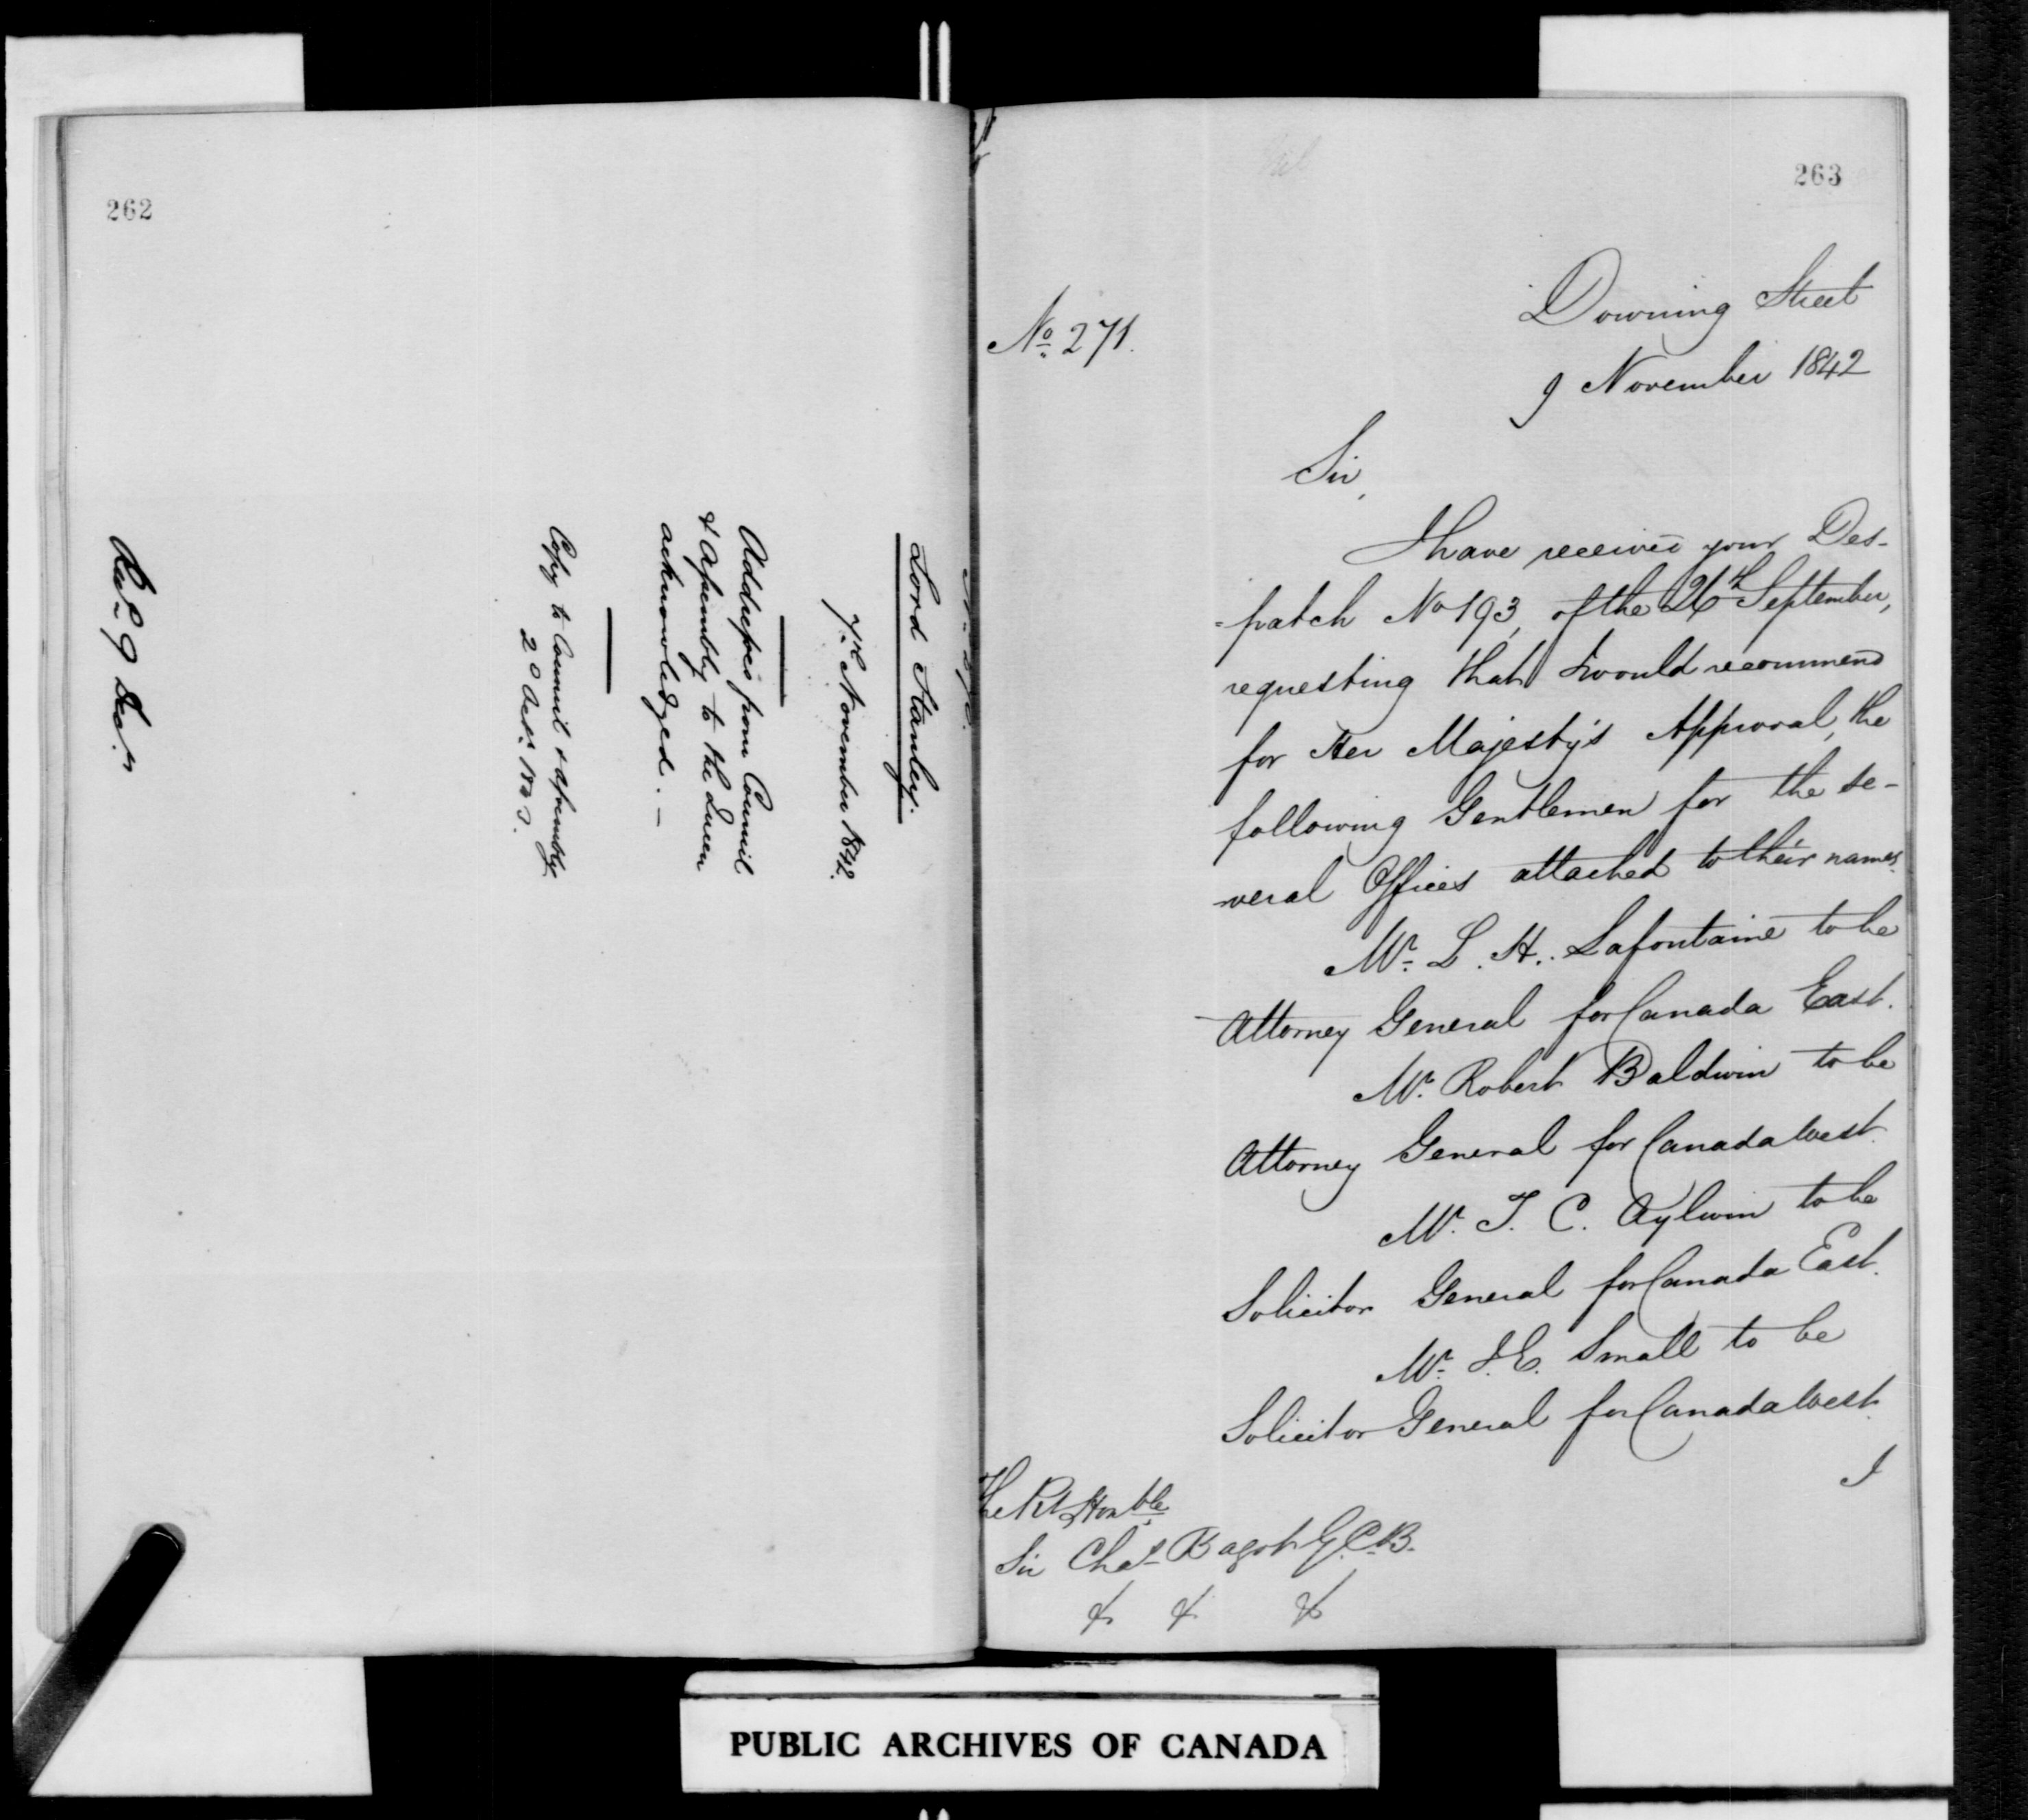 262
Lord Stanley.
7th November 1842.
Addresses from Council
& Assembly to the Queen
acknowledged. —
Copy to Council & Assembly
Recd 9 Decr
263
No. 271.
Downing Street
9 November 1842
Sir,
I have received your Des-
-patch No 193, of the 26th September,
requesting that I would recommend
for Her Majesty's Approval, the
following Gentlemen for the se-
-veral Offices attached to their names.
Mr. L. H. Lafontaine to be
Attorney General for Canada East.
Mr. Robert Baldwin to be
Attorney General for Canada West.
Mr. T. C. Aylwin to be
Solicitor General for Canada East.
Mr. J. E. Small to be
Solicitor General for Canada West.
I
The Rt Honble
Sir Chas Bagot G.C.B.
& & &
PUBLIC ARCHIVES OF CANADA